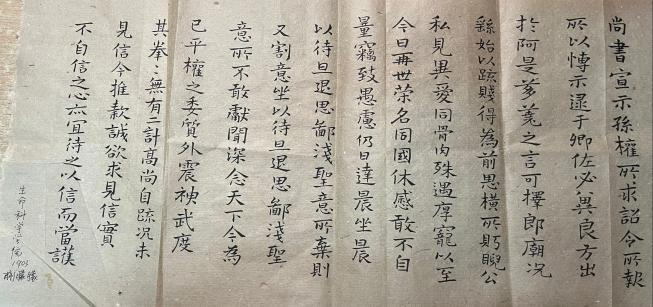 尚書宣示孫權所求詔令所報
所以博示逮于卿佐必異良方出
於阿是芻蕘之言可擇郎廟況
繇始以疏賤得為前思橫所眄睨公
私見異愛同骨肉殊遇厚寵以至
今日再世榮名同國休感敢不自
量竊致愚慮仍日達晨坐晨
以待旦退思鄙淺聖意所棄則
又割意坐以待旦退思鄙淺聖
意所不敢獻聞深念天下今為
已平權之委質外震神武度
其拳〻無有二計高尚自疏況未
見信今推款誠欲求見信實
不自信之心亦宜待之以信而當護
生命科學
1903